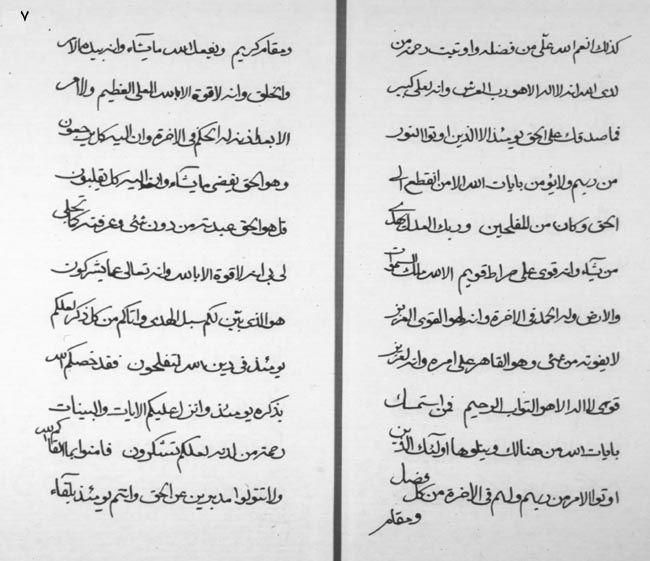 كذلك انعم الله علّى من فضله واوتيت رحمة من
لدى الله انه لا اله الا هو رب العرش وانه لعلى كبير
فما صدقك على الحق يومئذ الا الذين اوتوا النور
من ربهم ولا يؤمن بايات الله الا من انقطع الى
الحق وكان من المفلحين وربك العدل يحكم
من يشاء وانه قوى على صراط قويم الا لله ملك السموات
والارض وله الحمد فى الاخرة وانه لهو القوى العزيز
لا يفوته من شئ وهو القاهر على امره وانه لعزيز
قوى لا اله الا هو التواب الرحيم فمن استمسك
بايات الله من هنالك ويتلوها اولئك الذين
اوتوا الامر من ربهم ولهم فى الاخرة من كل فضل
ومقام
٧
ومقام كريم ويفعل الله ما يشاء وانه بيده الامر
والخلق وانه لا قوة الا بالله العلى العظيم والامر
الا بعد اذنه له الحكم فى الاخرة وان اليه كل يرجعون
وهو الحق يقضى ما يشاء وانه اليه كل يقلبون
قل هو الحق عبدته من دون شئ وعرفته كما تجلى
لى بى انه لا قوة الا بالله وانه تعالى عما يشركون
هو الذى بيّن لكم سبل الهدى واتاكم من كل ذكر لعلكم
يومئذ فى دين الله لتفلحون فقد خصكم الله
بذكره يومئذ وانزل عليكم الايات والبينات
رحمة من لدنه لعلكم تشكرون فامنوا بما القاكم الله
ولا تتولوا مدبرين عن الحق وانتم يومئذ بلقاء